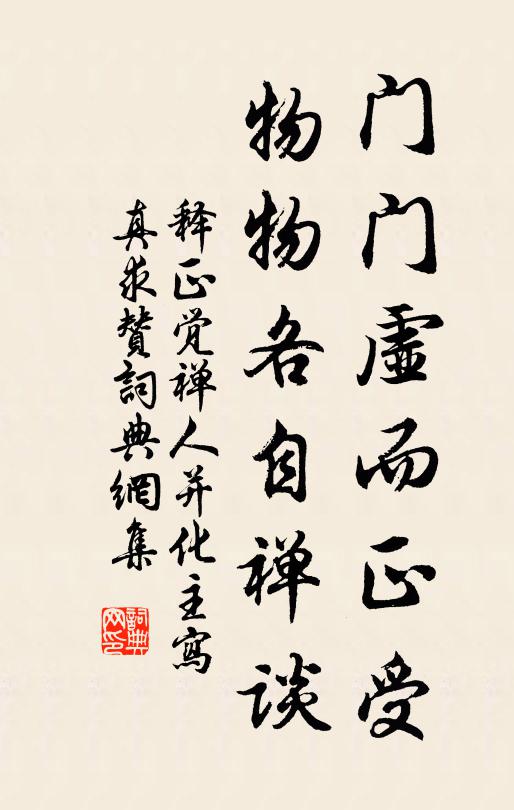 门门虚而正受
物物各自禅谈
释正觉禅人并化主寫
真求赞詞典網集
詞典网印